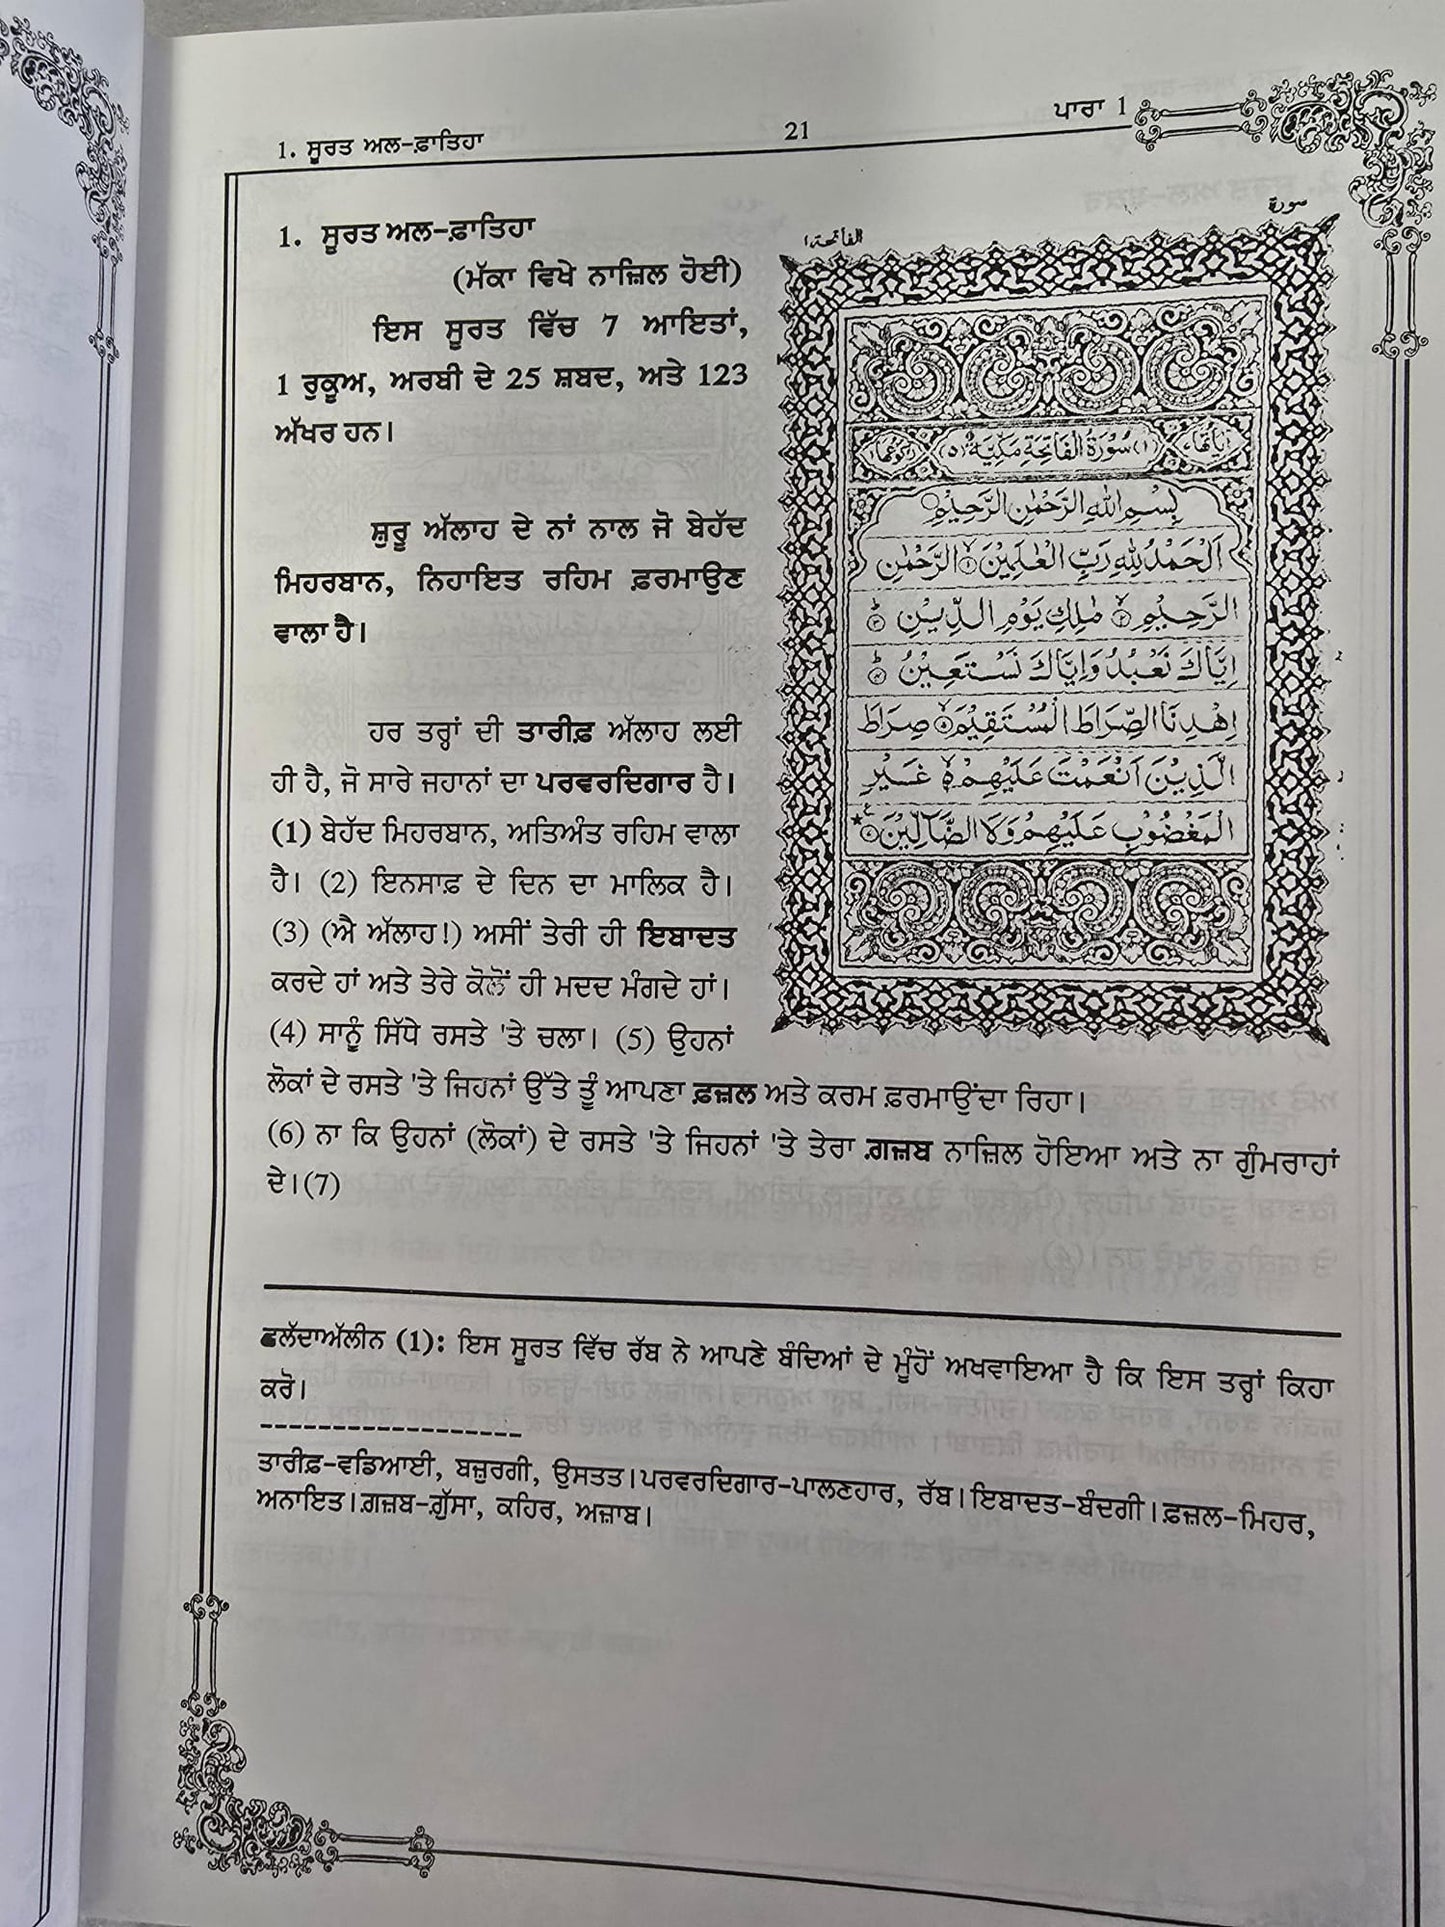 1. ਸੂਰਤ ਅਲ-ਫ਼ਾਤਿਹਾ
21
ਪਾਰਾ 1
1. ਸੂਰਤ ਅਲ-ਫ਼ਾਤਿਹਾ
(ਮੱਕਾ ਵਿਖੇ ਨਾਜ਼ਿਲ ਹੋਈ)
ਇਸ ਸੂਰਤ ਵਿੱਚ 7 ਆਇਤਾਂ,
1 ਰੁਕੂਅ, ਅਰਬੀ ਦੇ 25 ਸ਼ਬਦ, ਅਤੇ 123
ਅੱਖਰ ਹਨ।
ਸ਼ੁਰੂ ਅੱਲਾਹ ਦੇ ਨਾਂ ਨਾਲ ਜੋ ਬੇਹੱਦ
ਮਿਹਰਬਾਨ, ਨਿਹਾਇਤ ਰਹਿਮ ਫ਼ਰਮਾਉਣ
ਵਾਲਾ ਹੈ।
ਹਰ ਤਰ੍ਹਾਂ ਦੀ ਤਾਰੀਫ਼ ਅੱਲਾਹ ਲਈ
ਹੀ ਹੈ, ਜੋ ਸਾਰੇ ਜਹਾਨਾਂ ਦਾ ਪਰਵਰਦਿਗਾਰ ਹੈ।
(1) ਬੇਹੱਦ ਮਿਹਰਬਾਨ, ਅਤਿਅੰਤ ਰਹਿਮ ਵਾਲਾ
ਹੈ। (2) ਇਨਸਾਫ਼ ਦੇ ਦਿਨ ਦਾ ਮਾਲਿਕ ਹੈ।
(3) (ਐ ਅੱਲਾਹ!) ਅਸੀਂ ਤੇਰੀ ਹੀ ਇਬਾਦਤ
ਕਰਦੇ ਹਾਂ ਅਤੇ ਤੇਰੇ ਕੋਲੋਂ ਹੀ ਮਦਦ ਮੰਗਦੇ ਹਾਂ।
(4) ਸਾਨੂੰ ਸਿੱਧੇ ਰਸਤੇ 'ਤੇ ਚਲਾ। (5) ਉਹਨਾਂ
ਲੋਕਾਂ ਦੇ ਰਸਤੇ 'ਤੇ ਜਿਹਨਾਂ ਉੱਤੇ ਤੂੰ ਆਪਣਾ ਫ਼ਜ਼ਲ ਅਤੇ ਕਰਮ ਫ਼ਰਮਾਉਂਦਾ ਰਿਹਾ।
(6) ਨਾ ਕਿ ਉਹਨਾਂ (ਲੋਕਾਂ) ਦੇ ਰਸਤੇ 'ਤੇ ਜਿਹਨਾਂ 'ਤੇ ਤੇਰਾ ਗ਼ਜ਼ਬ ਨਾਜ਼ਿਲ ਹੋਇਆ ਅਤੇ ਨਾ ਗੁੰਮਰਾਹਾਂ
ਦੇ।(7)
سورة
الفاتحة ١
(١) سُوْرَةُ الْفَاتِحَةِ مَكِّيَّةٌ (٥)
بِسْمِ اللهِ الرَّحْمٰنِ الرَّحِيْمِ
اَلْحَمْدُ لِلّٰهِ رَبِّ الْعٰلَمِيْنَ ۙ١ الرَّحْمٰنِ
الرَّحِيْمِ ۙ٢ مٰلِكِ يَوْمِ الدِّيْنِ ؕ٣
اِيَّاكَ نَعْبُدُ وَاِيَّاكَ نَسْتَعِيْنُ ؕ٤
اِهْدِنَا الصِّرَاطَ الْمُسْتَقِيْمَ ۙ٥ صِرَاطَ
الَّذِيْنَ اَنْعَمْتَ عَلَيْهِمْ ۙ٦ غَيْرِ
الْمَغْضُوْبِ عَلَيْهِمْ وَلَا الضَّآلِّيْنَ ٧
ਵਲੱਦਾਅੱਲੀਨ (1): ਇਸ ਸੂਰਤ ਵਿੱਚ ਰੱਬ ਨੇ ਆਪਣੇ ਬੰਦਿਆਂ ਦੇ ਮੂੰਹੋਂ ਅਖਵਾਇਆ ਹੈ ਕਿ ਇਸ ਤਰ੍ਹਾਂ ਕਿਹਾ
ਕਰੋ।
ਤਾਰੀਫ਼-ਵਡਿਆਈ, ਬਜ਼ੁਰਗੀ, ਉਸਤਤ।ਪਰਵਰਦਿਗਾਰ-ਪਾਲਣਹਾਰ, ਰੱਬ।ਇਬਾਦਤ-ਬੰਦਗੀ।ਫ਼ਜ਼ਲ-ਮਿਹਰ,
ਅਨਾਇਤ।ਗ਼ਜ਼ਬ-ਗ਼ੁੱਸਾ, ਕਹਿਰ, ਅਜ਼ਾਬ।